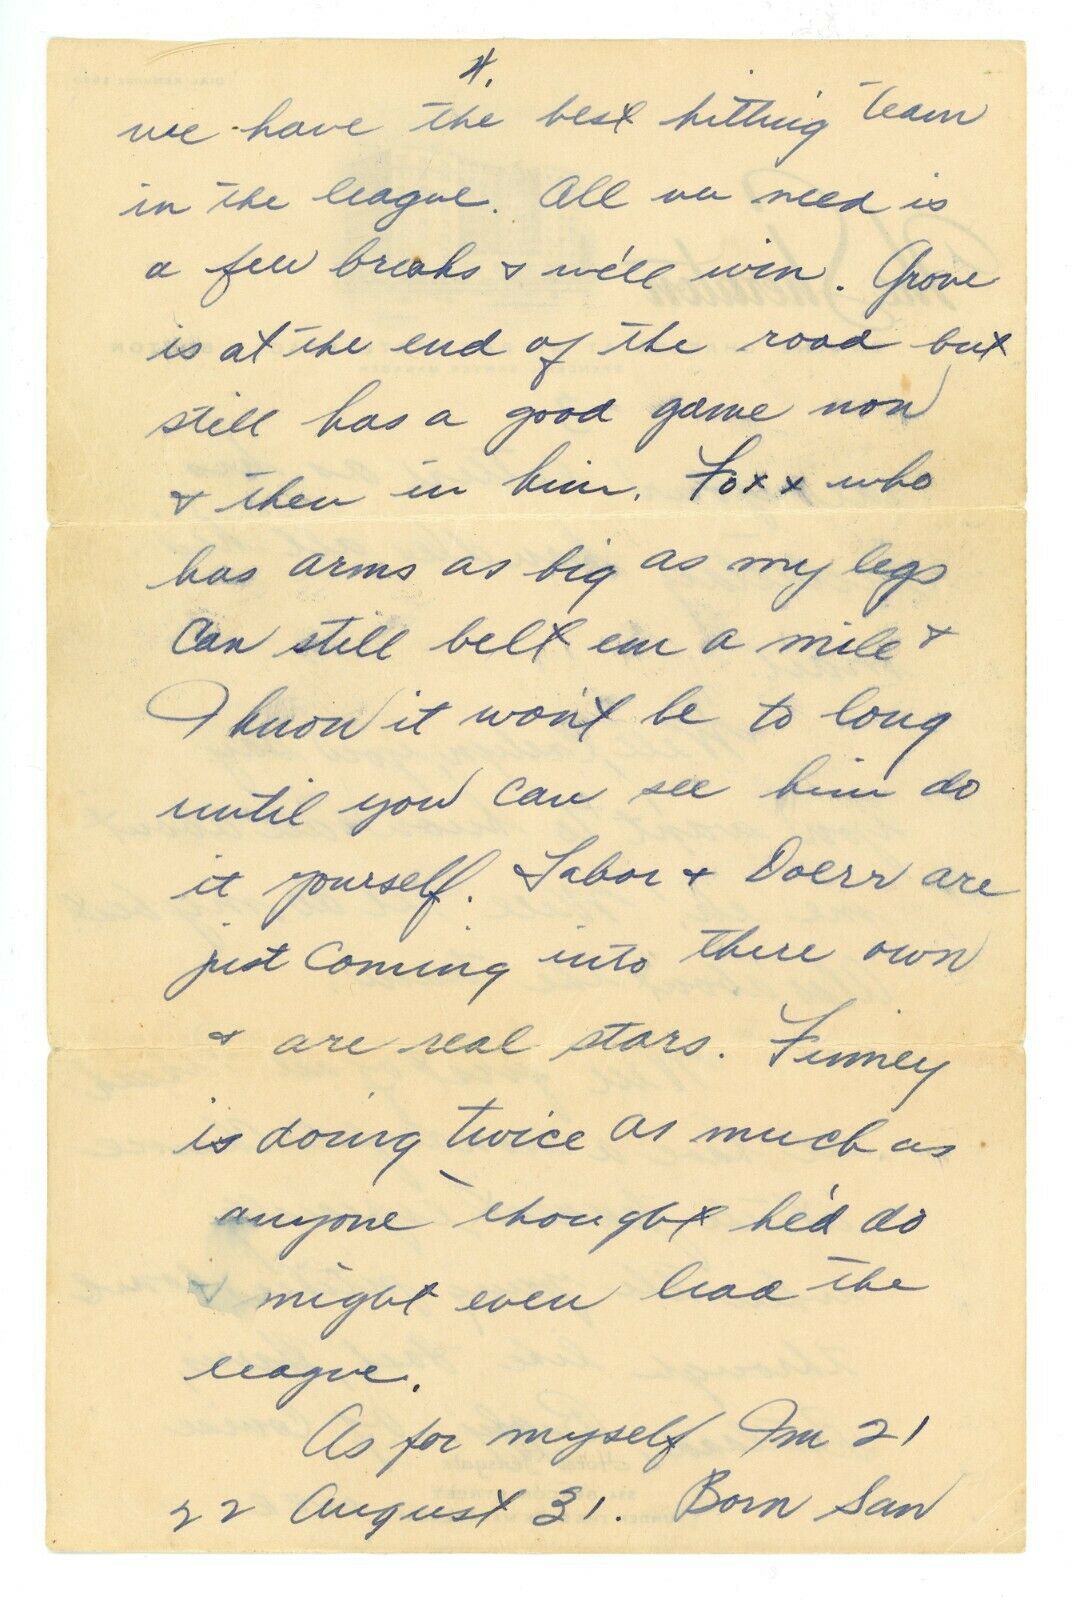 4.
we have the best hitting team
in the league. All we need is
a few breaks & we'll win. Grove
is at the end of the road but
still has a good game now
& then in him. Foxx who
has arms as big as my legs
can still belt em a mile &
I know it won't be to long
until you can see him do
it yourself. Tabor & Doerr are
just coming into there own
& are real stars. Finney
is doing twice as much as
anyone thought he'd do
& might even lead the
league.
As for myself Im 21
22 August 31. Born San